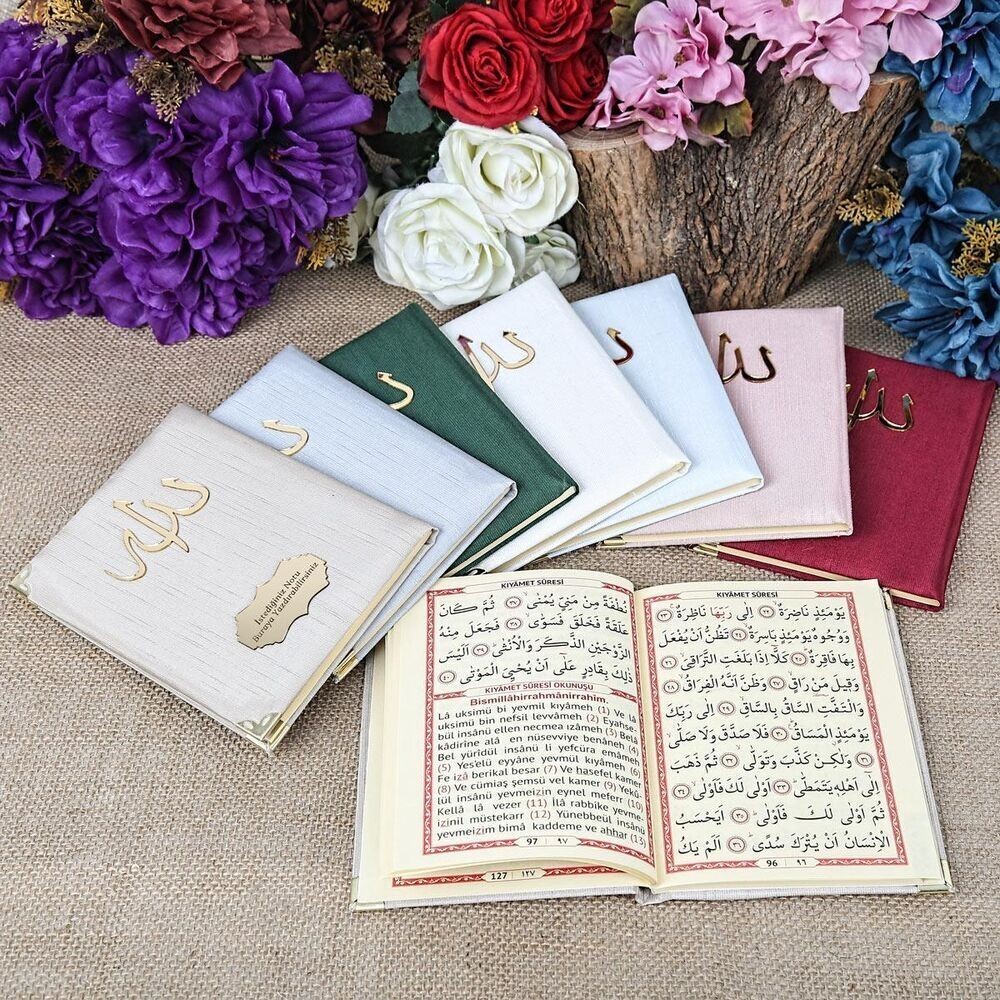 الله
İstediğiniz Notu
Buraya Yazdırabilirsiniz
KIYÂMET SÛRESİ
يَوْمَئِذٍ نَاضِرَةٌ ﴿٢٢﴾ اِلٰى رَبِّهَا نَاظِرَةٌ ﴿٢٣﴾
وَوُجُوهٌ يَوْمَئِذٍ بَاسِرَةٌ ﴿٢٤﴾ تَظُنُّ اَنْ يُفْعَلَ
بِهَا فَاقِرَةٌ ﴿٢٥﴾ كَلَّٓا اِذَا بَلَغَتِ التَّرَاقِيَ ﴿٢٦﴾
وَقِيلَ مَنْ رَاقٍ ﴿٢٧﴾ وَظَنَّ اَنَّهُ الْفِرَاقُ ﴿٢٨﴾
وَالْتَفَّتِ السَّاقُ بِالسَّاقِ ﴿٢٩﴾ اِلٰى رَبِّكَ
يَوْمَئِذٍ الْمَسَاقُ ﴿٣٠﴾ فَلَا صَدَّقَ وَلَا صَلّٰى
﴿٣١﴾ وَلٰكِنْ كَذَّبَ وَتَوَلّٰى ﴿٣٢﴾ ثُمَّ ذَهَبَ
اِلٰٓى اَهْلِهِ يَتَمَطّٰى ﴿٣٣﴾ اَوْلٰى لَكَ فَاَوْلٰى ﴿٣٤﴾
ثُمَّ اَوْلٰى لَكَ فَاَوْلٰى ﴿٣٥﴾ اَيَحْسَبُ
الْاِنْسَانُ اَنْ يُتْرَكَ سُدًى ﴿٣٦﴾ اَلَمْ يَكُ
96 | ٩٦
KIYÂMET SÛRESİ
نُطْفَةً مِنْ مَنِيٍّ يُمْنٰى ﴿٣٧﴾ ثُمَّ كَانَ
عَلَقَةً فَخَلَقَ فَسَوّٰى ﴿٣٨﴾ فَجَعَلَ مِنْهُ
الزَّوْجَيْنِ الذَّكَرَ وَالْاُنْثٰى ﴿٣٩﴾ اَلَيْسَ
ذٰلِكَ بِقَادِرٍ عَلٰٓى اَنْ يُحْيِيَ الْمَوْتٰى ﴿٤٠﴾
KIYÂMET SÛRESİ OKUNUŞU
Bismillâhirrahmânirrahîm.
Lâ uksimü bi yevmil kıyâmeh (1) Ve lâ
uksimü bin nefsil levvâmeh (2) Eyahse-
bül insânü ellen necmea ızâmeh (3) Belâ
kâdirîne alâ en nüsevviye benâneh (4)
Bel yürîdül insânü li yefcüra emâmeh
(5) Yes'elü eyyâne yevmül kıyâmeh (6)
Fe izâ berikal besar (7) Ve hasefel kamer
(8) Ve cümiaş şemsü vel kamer (9) Yekû-
lül insânü yevmeizin eynel meferr (10)
Kellâ lâ vezer (11) İlâ rabbike yevme-
izinil müstekarr (12) Yünebbeül insânü
yevmeizim bimâ kaddeme ve ahhar (13)
97 | ٩٧
127 | ١٢٧